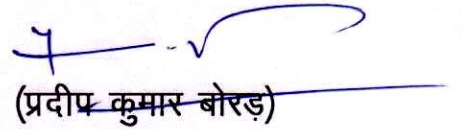 (प्रदीप कुमार बोरड़)